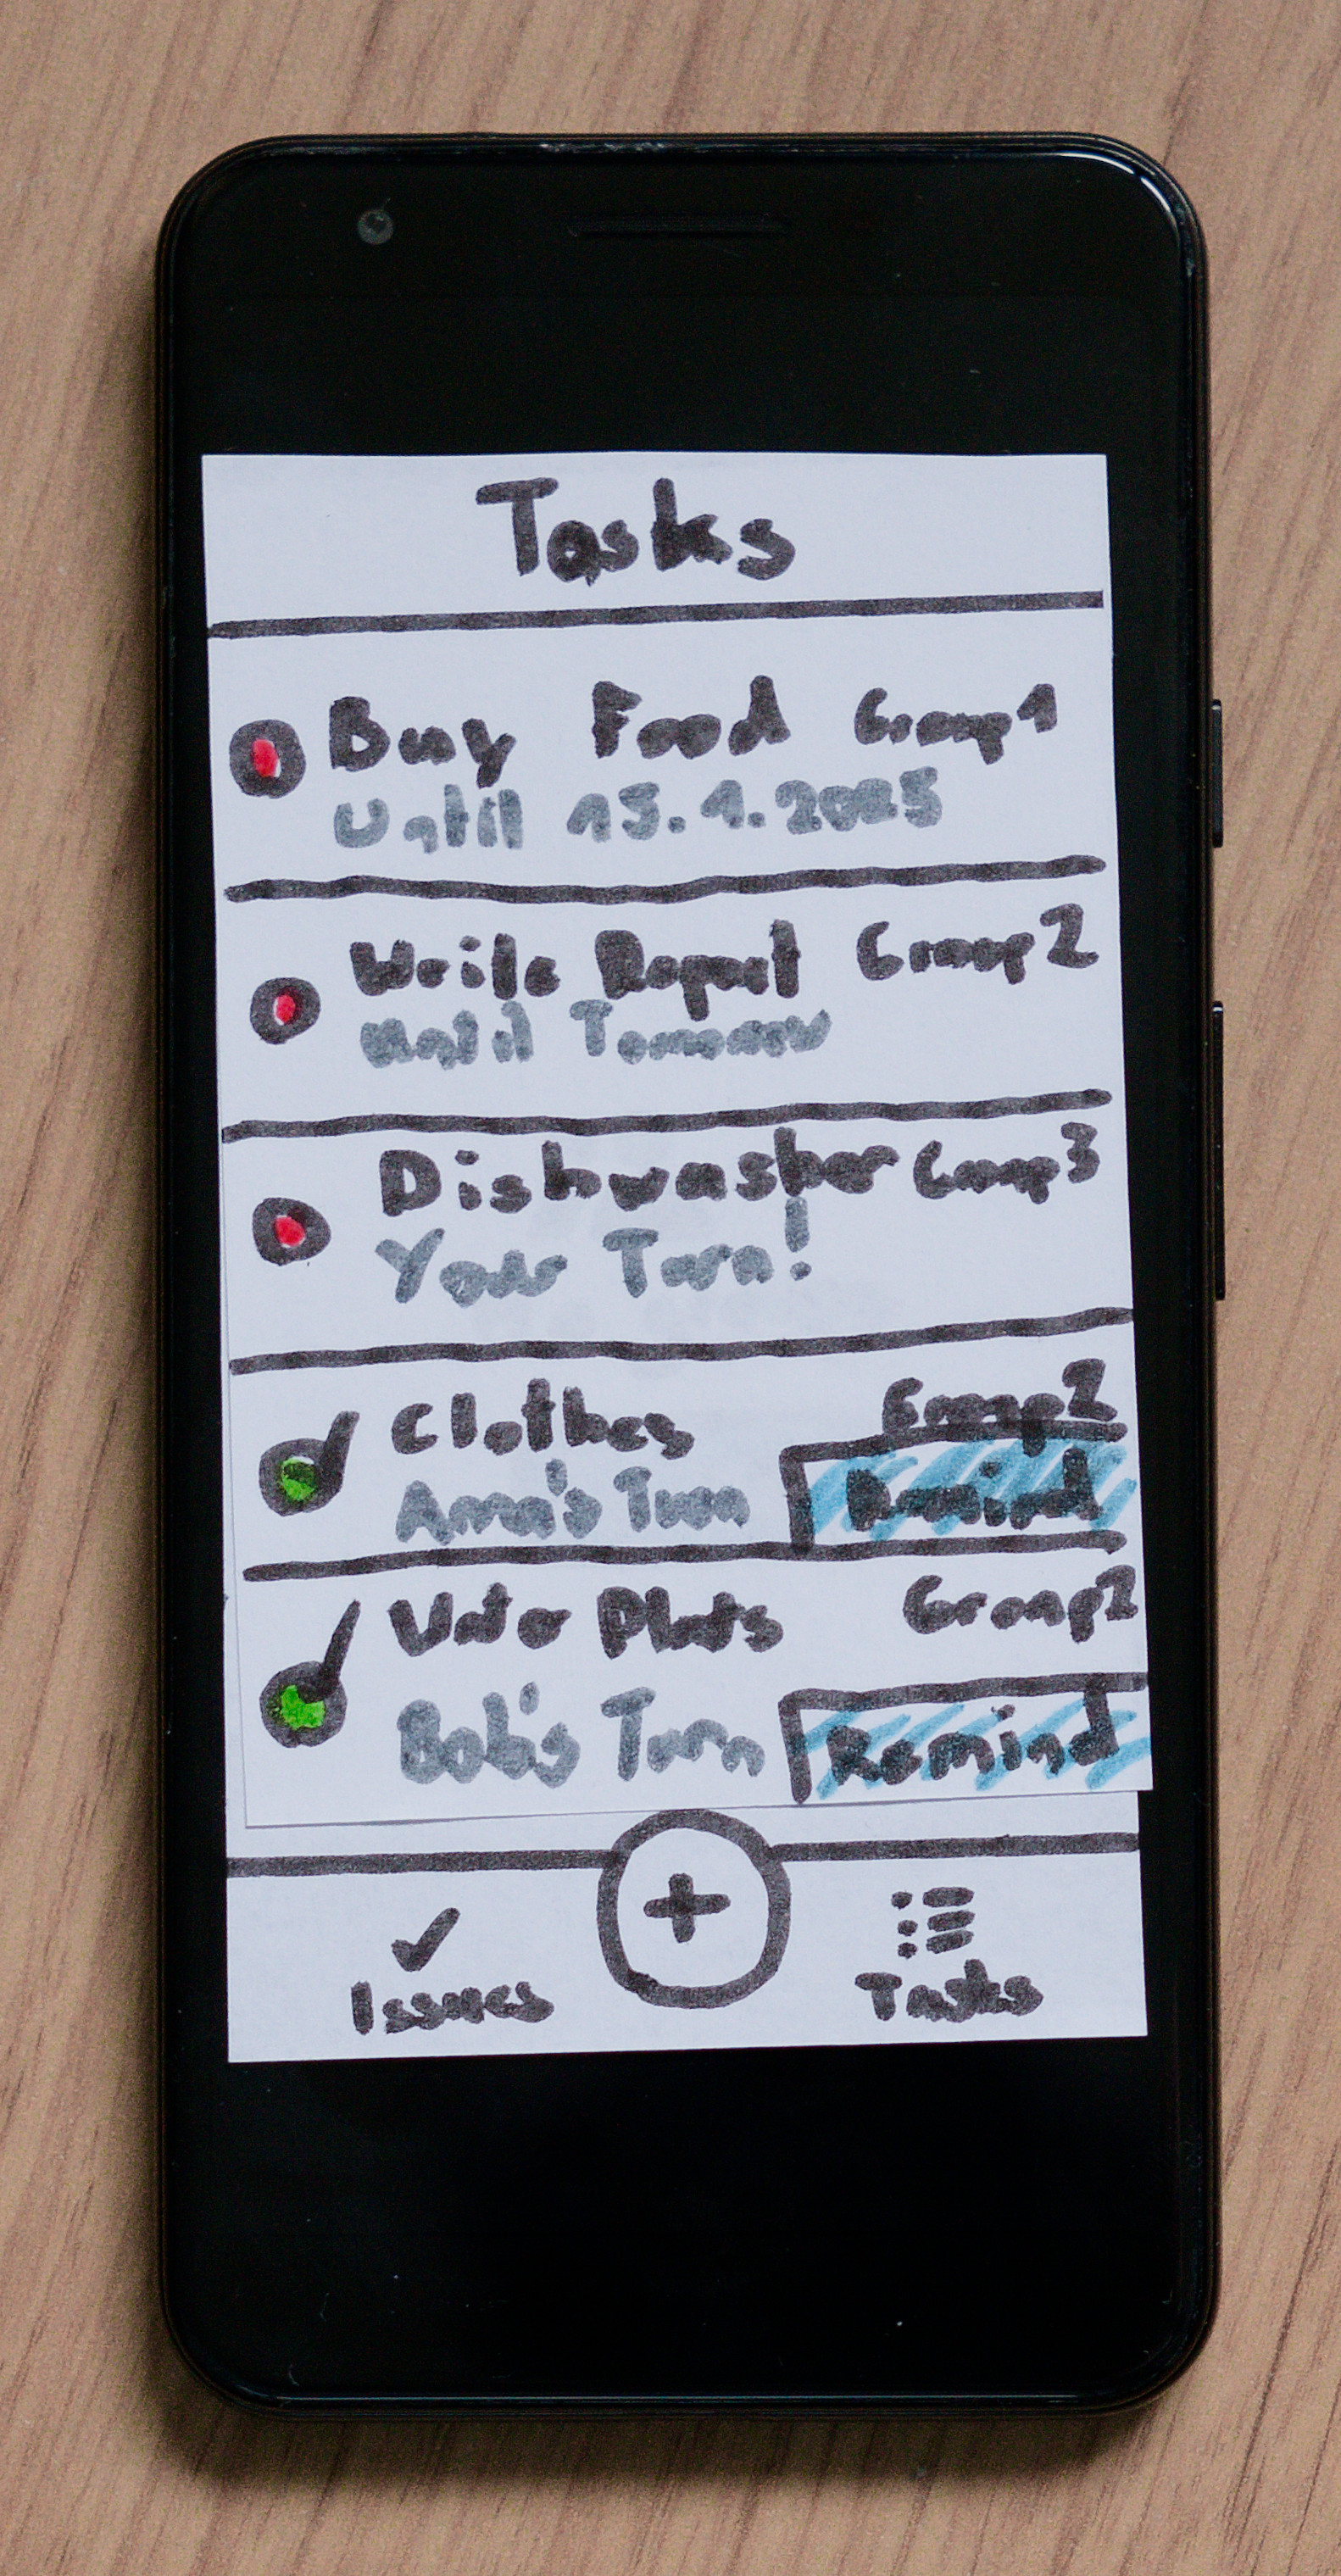 Tasks
Buy Food Group1
Until 15.1.2025
Write Report Group2
Until Tomorrow
Dishwasher Group3
Your Turn!
Clothes Group2
Anna's Turn Remind
Plats Group2
Bob's Turn Remind
Issues
Tasks